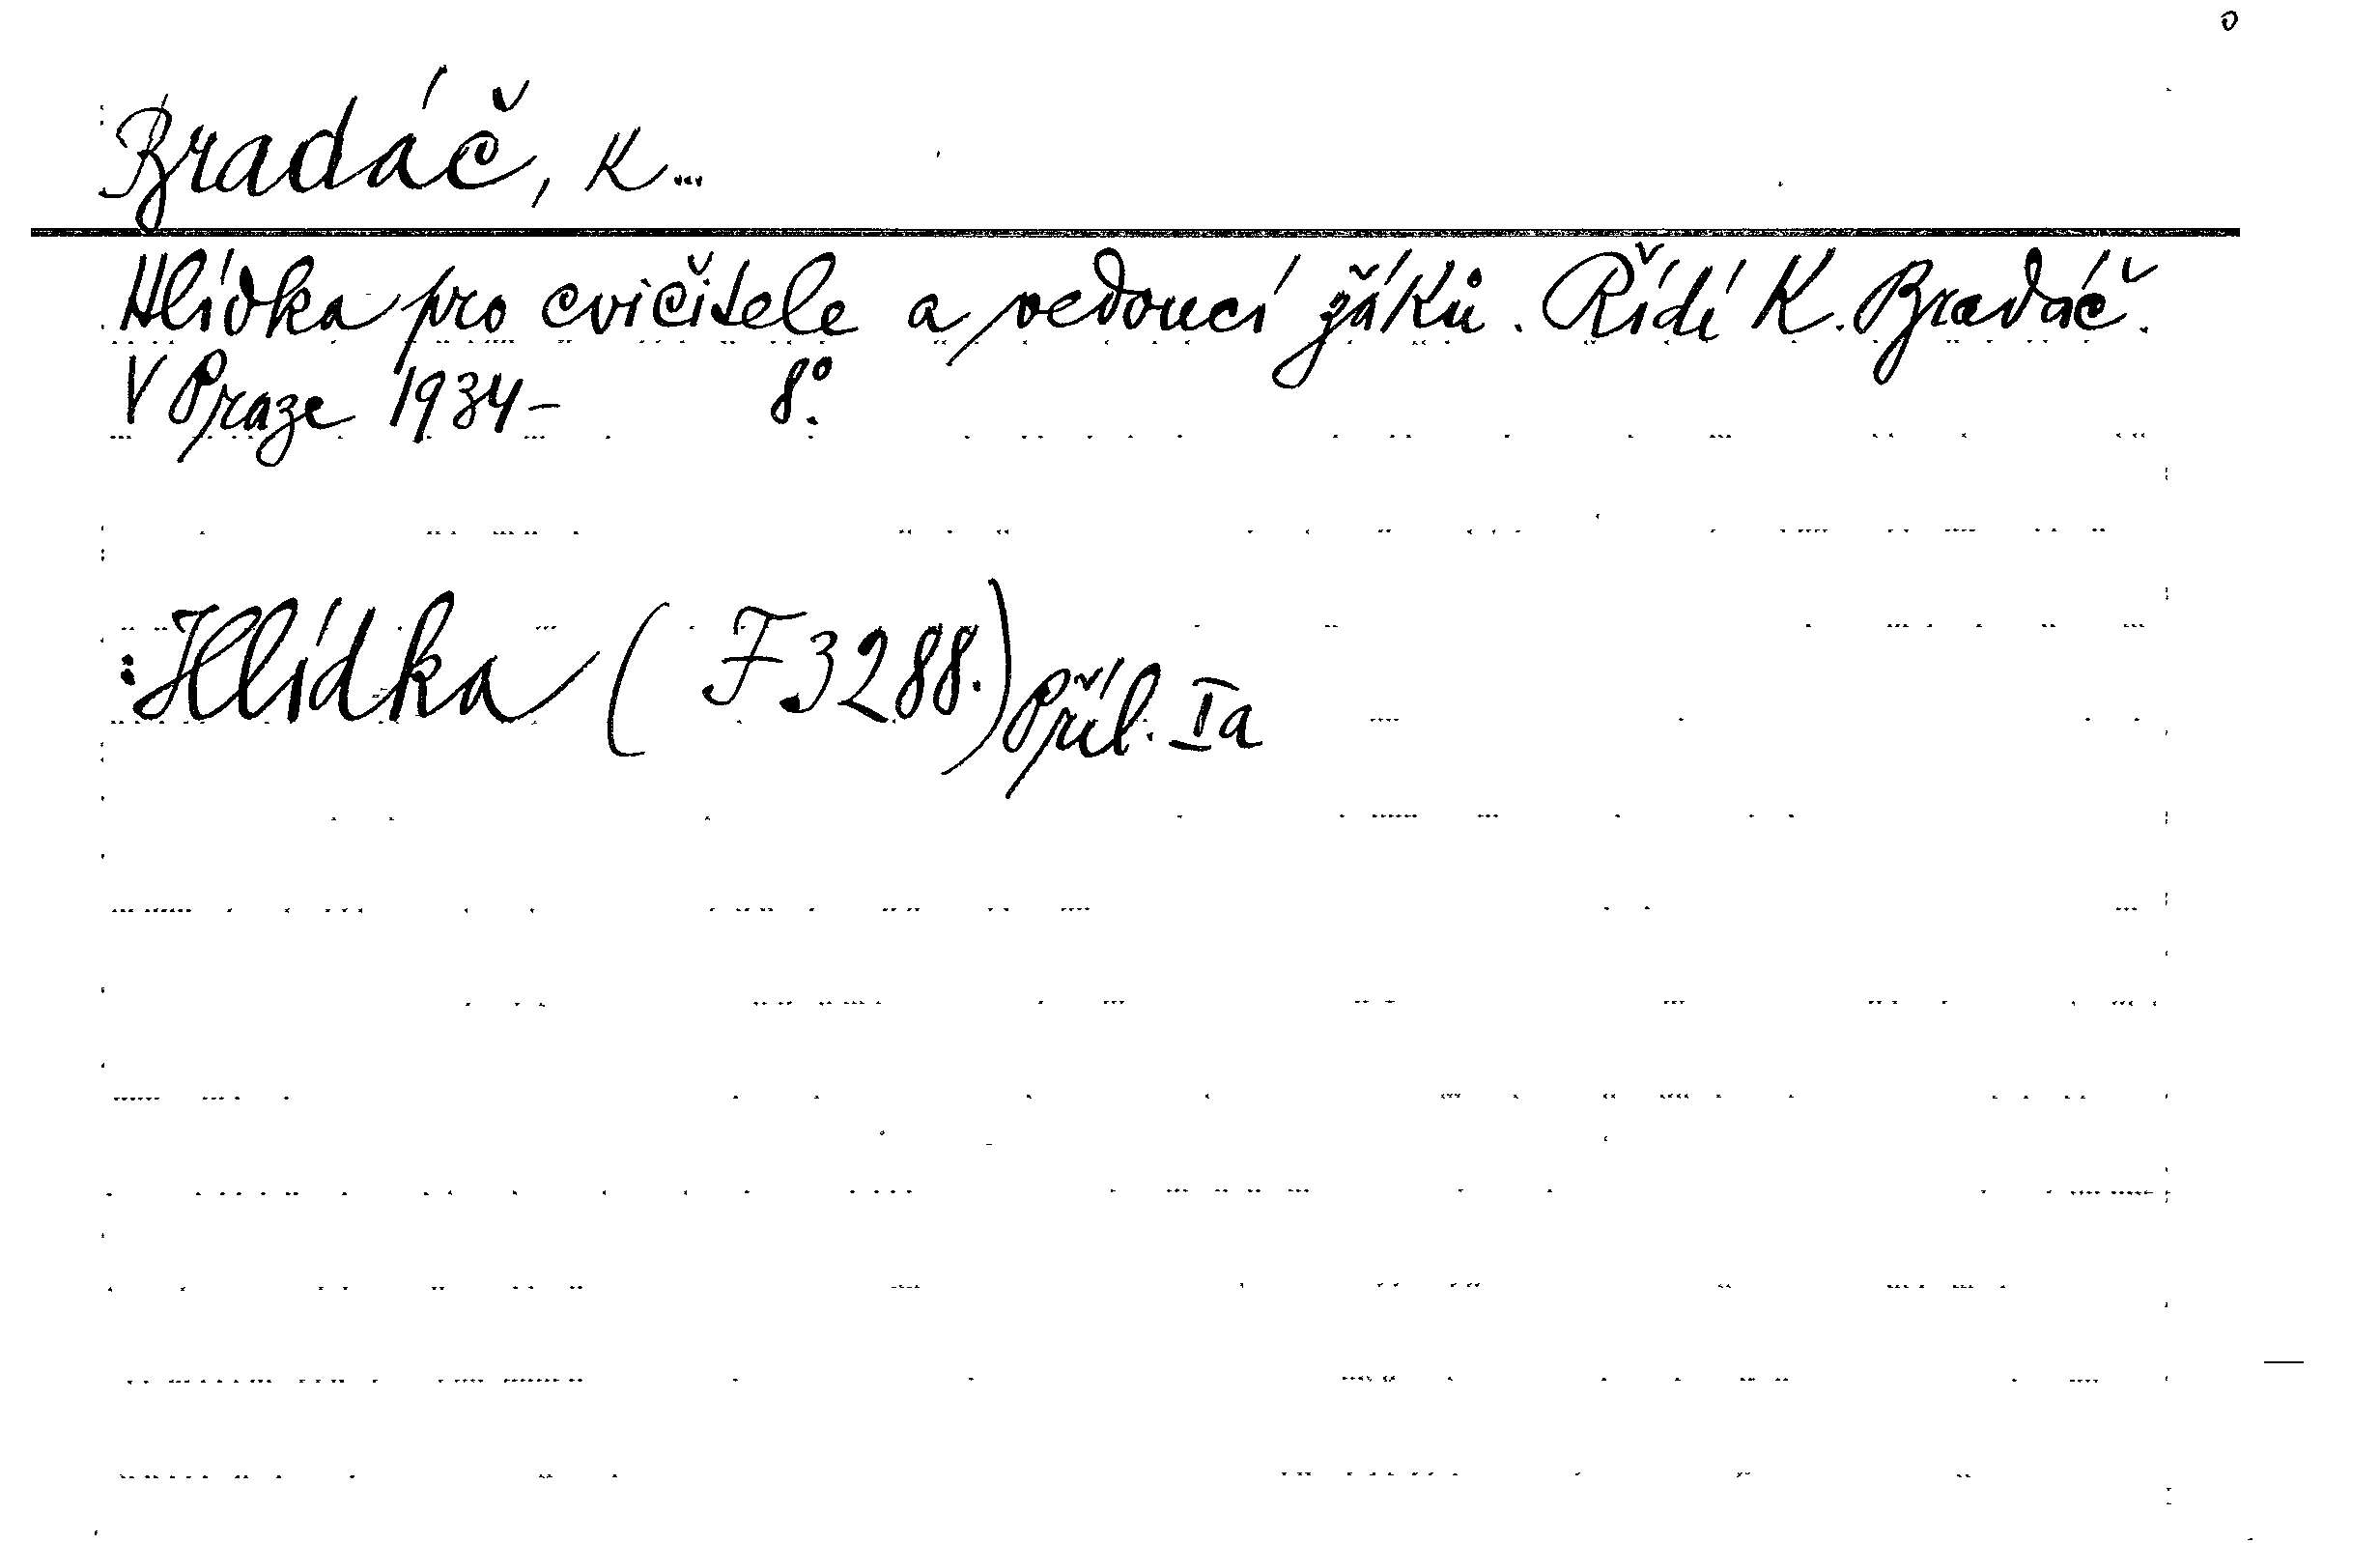 Bradáč, K...
Hlídka pro cvičitele a vedoucí žáků. Řídí K. Bradáč.
V Praze 1934- 8°.
:Hlídka ( F 3288.) Příl. Ia